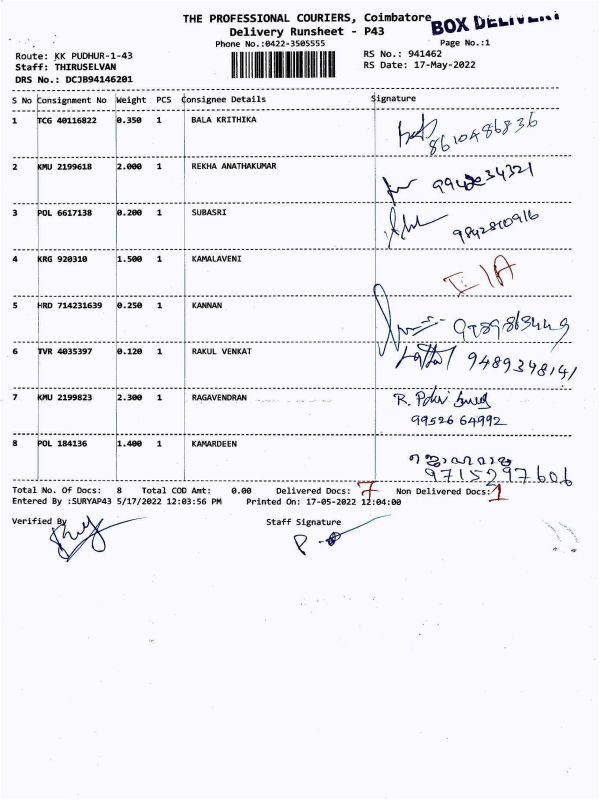 THE PROFESSIONAL COURIERS, Coimbatore
BOX DELIVERY
Delivery Runsheet - P43
Phone No.:0422-3505555
Page No.:1
Route: KK PUDHUR-1-43
RS No.: 941462
Staff: THIRUSELVAN
RS Date: 17-May-2022
DRS No.: DCJB94146201
S No Consignment No Weight PCS Consignee Details Signature
1 TCG 40116822 0.350 1 BALA KRITHIKA
8610486836
2 KMU 2199618 2.000 1 REKHA ANATHAKUMAR
3 POL 6617138 0.200 1 SUBASRI
9842810916
4 KRG 920310 1.500 1 KAMALAVENI
5 HRD 714231639 0.250 1 KANNAN
6 TVR 4035397 0.120 1 RAKUL VENKAT
9489348141
7 KMU 2199823 2.300 1 RAGAVENDRAN
9952664992
8 POL 184136 1.400 1 KAMARDEEN
9715297606
Total No. Of Docs: 8 Total COD Amt: 0.00 Delivered Docs: 7 Non Delivered Docs: 1
Entered By :SURYAP43 5/17/2022 12:03:56 PM Printed On: 17-05-2022 12:04:00
Verified By Staff Signature